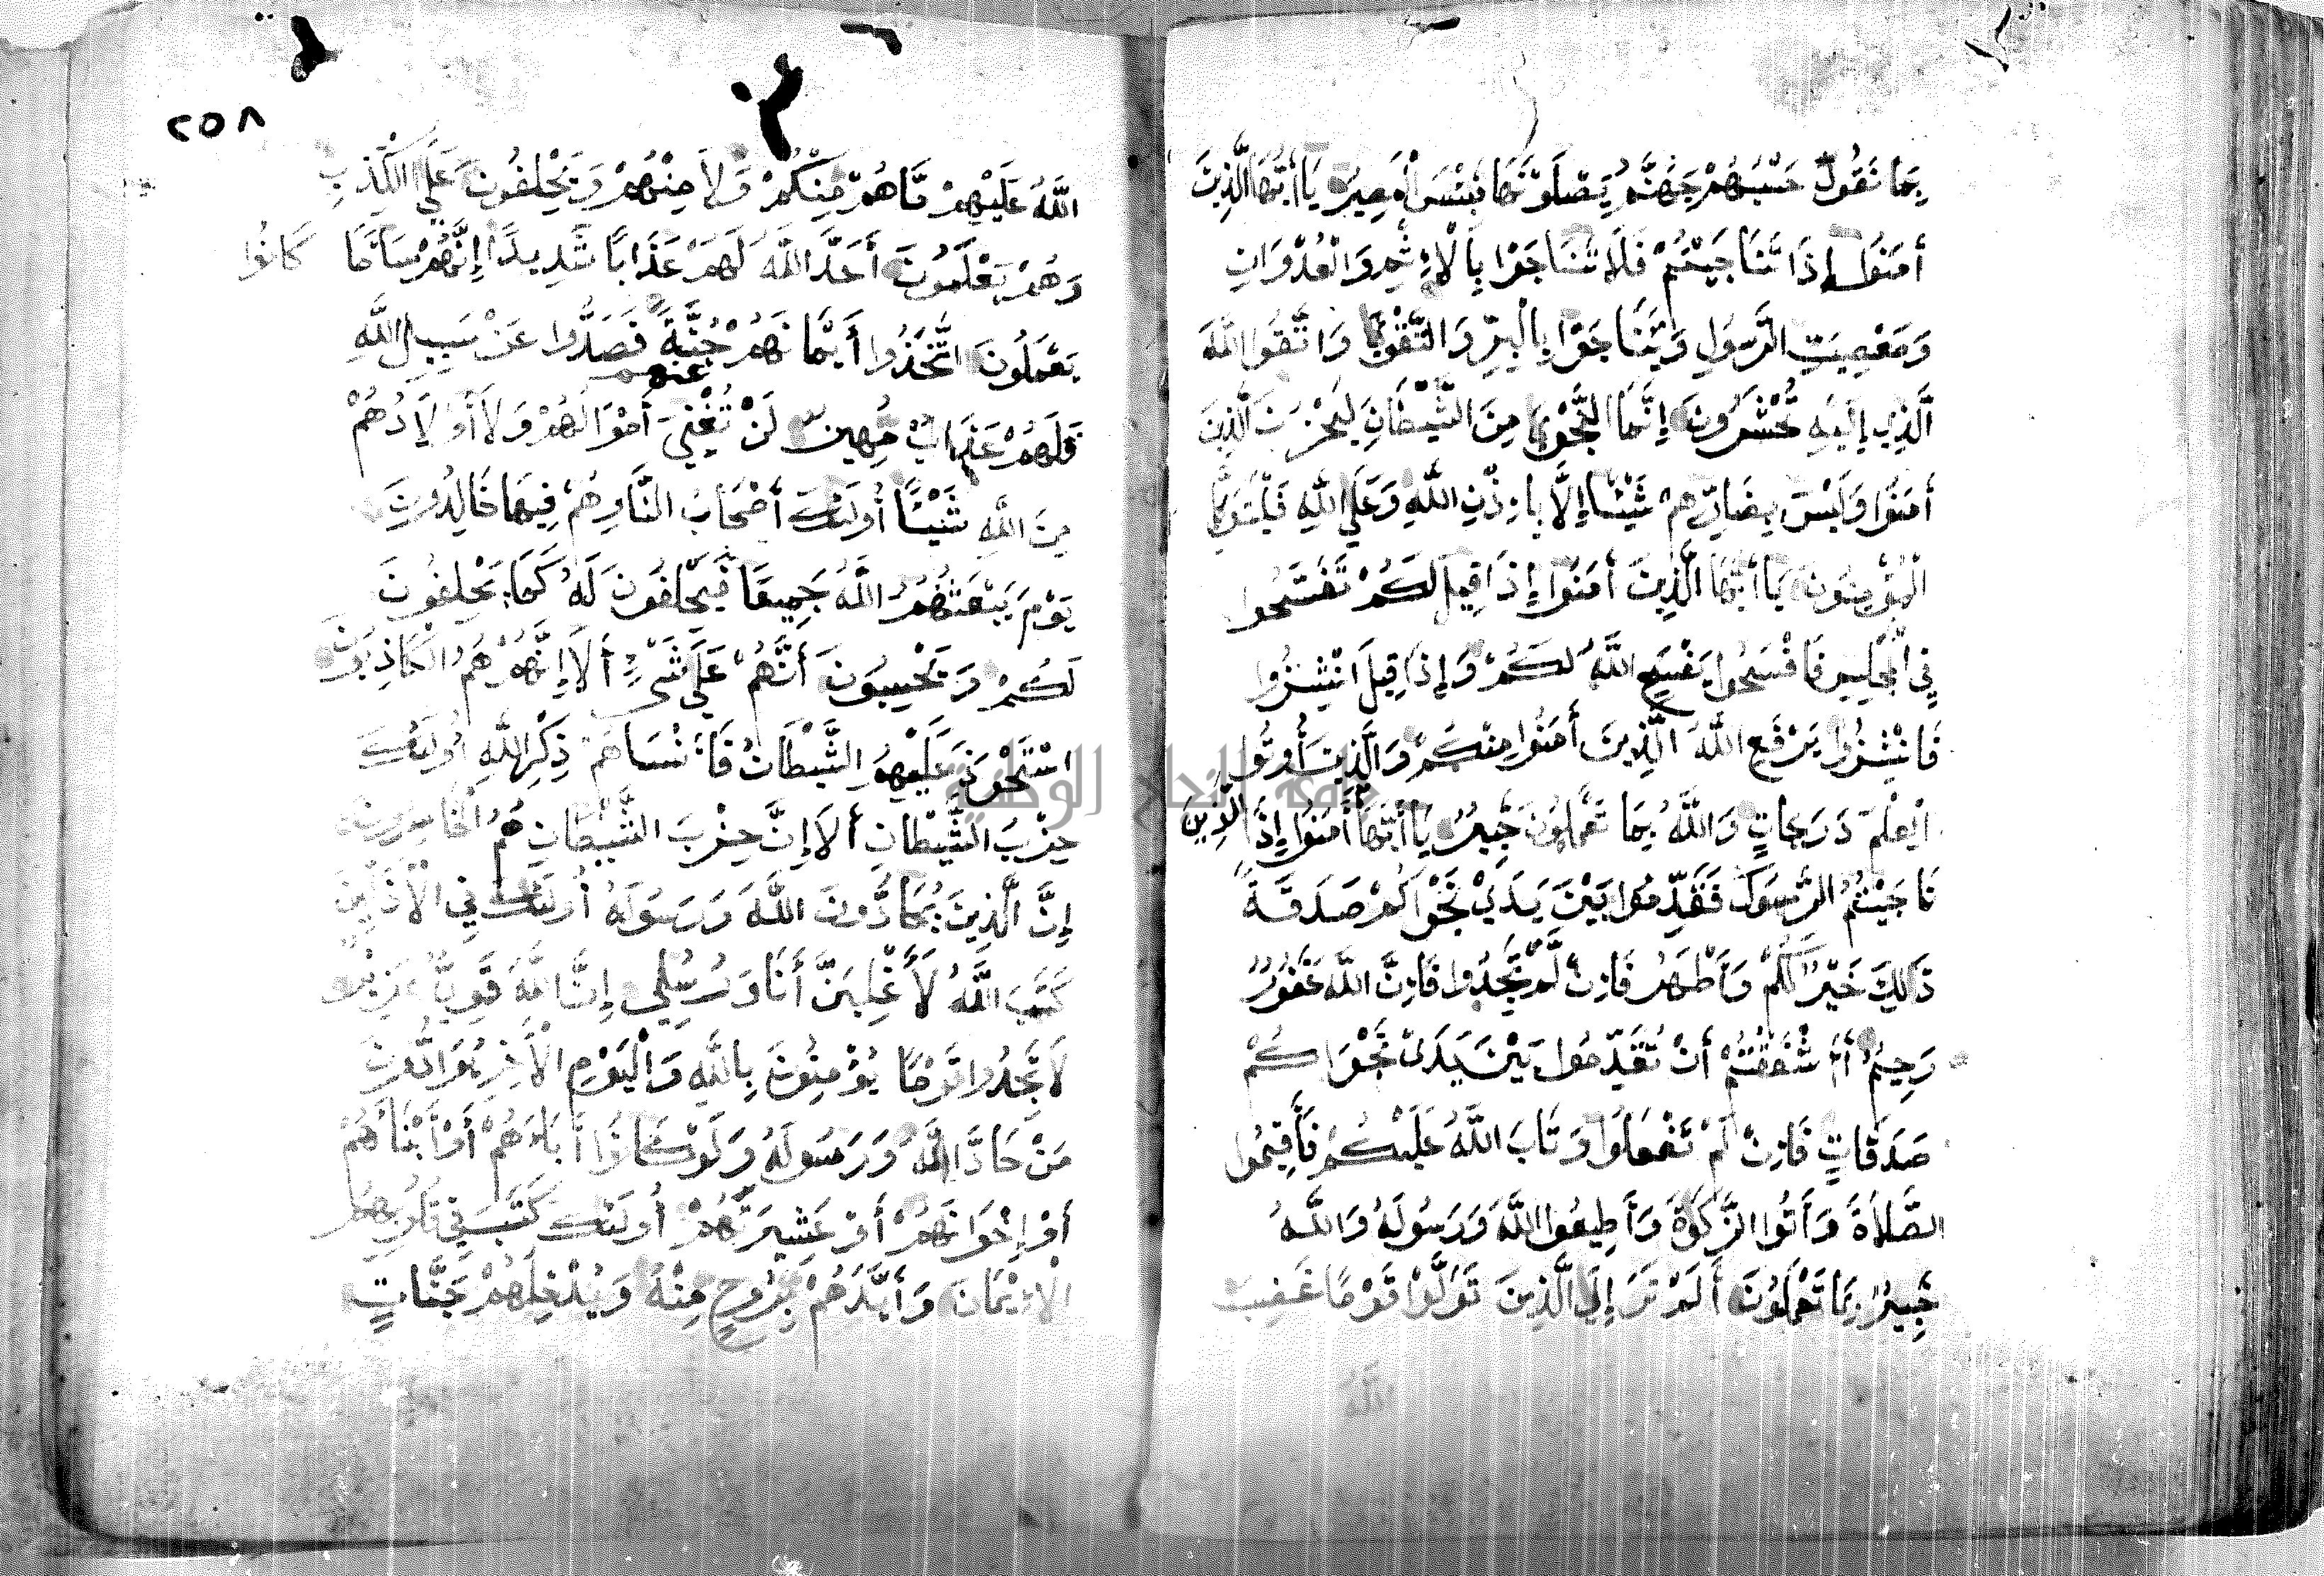 بِمَا نَقُولُ حَسْبُهُمْ جَهَنَّمُ يَصْلَوْنَهَا فَبِئْسَ الْمَصِيرُ يَا أَيُّهَا الَّذِينَ
أمَنُوا إِذَا تَنَاجَيْتُمْ فَلَا تَتَنَاجَوْا بِالْإِثْمِ وَالْعُدْوَانِ
وَمَعْصِيَتِ الرَّسُولِ وَتَنَاجَوْا بِالْبِرِّ وَالتَّقْوَى وَاتَّقُوا اللَّهَ
الَّذِي إِلَيْهِ تُحْشَرُونَ إِنَّمَا النَّجْوَى مِنَ الشَّيْطَانِ لِيَحْزُنَ الَّذِينَ
أمَنُوا وَلَيْسَ بِضَارِّهِمْ شَيْئًا إِلَّا بِإِذْنِ اللَّهِ وَعَلَى اللَّهِ فَلْيَتَوَكَّلِ
الْمُؤْمِنُونَ يَا أَيُّهَا الَّذِينَ أمَنُوا إِذَا قِيلَ لَكُمْ تَفَسَّحُوا
فِي الْمَجْلِسِ فَافْسَحُوا يَفْسَحِ اللَّهُ لَكُمْ وَإِذَا قِيلَ انْشِزُوا
فَانْشِزُوا يَرْفَعِ اللَّهُ الَّذِينَ أمَنُوا مِنْكُمْ وَالَّذِينَ أُوتُوا
الْعِلْمَ دَرَجَاتٍ وَاللَّهُ بِمَا تَعْمَلُونَ خَبِيرٌ يَا أَيُّهَا الَّذِينَ أمَنُوا إِذَا
نَاجَيْتُمُ الرَّسُولَ فَقَدِّمُوا بَيْنَ يَدَيْ نَجْوَاكُمْ صَدَقَةً
ذَالِكَ خَيْرٌ لَكُمْ وَأَطْهَرُ فَإِنْ لَمْ تَجِدُوا فَإِنَّ اللَّهَ غَفُورٌ
رَحِيمٌ أَأَشْفَقْتُمْ أَنْ تُقَدِّمُوا بَيْنَ يَدَيْ نَجْوَاكُمْ
صَدَقَاتٍ فَإِنْ لَمْ تَفْعَلُوا وَتَابَ اللَّهُ عَلَيْكُمْ فَأَقِيمُوا
الصَّلَاةَ وَأَتُوا الزَّكَوةَ وَأَطِيعُوا اللَّهَ وَرَسُولَهُ وَاللَّهُ
خَبِيرٌ بِمَا تَعْمَلُونَ أَلَمْ تَرَ إِلَى الَّذِينَ تَوَلَّوْا قَوْمًا غَضِبَ
٢٥٨
اللَّهُ عَلَيْهِمْ مَّا هُمْ مِنْكُمْ وَلَا مِنْهُمْ وَيَحْلِفُونَ عَلَى الْكَذِبِ
وَهُمْ يَعْلَمُونَ أَعَدَّ اللَّهُ لَهُمْ عَذَابًا شَدِيدًا إِنَّهُمْ سَاءَ مَا كَانُوا
يَعْمَلُونَ اتَّخَذُوا أَيْمَانَهُمْ جُنَّةً فَصَدُّوا عَنْ سَبِيلِ اللَّهِ
فَلَهُمْ عَذَابٌ مُهِينٌ لَنْ تُغْنِيَ عنهم أَمْوَالُهُمْ وَلَا أَوْلَادُهُمْ
مِنَ اللَّهِ شَيْئًا أُولَئِكَ أَصْحَابُ النَّارِ هُمْ فِيهَا خَالِدُونَ
يَوْمَ يَبْعَثُهُمُ اللَّهُ جَمِيعًا فَيَحْلِفُونَ لَهُ كَمَا يَحْلِفُونَ
لَكُمْ وَيَحْسِبُونَ أَنَّهُمْ عَلَى شَيْءٍ أَلَا إِنَّهُمْ هُمُ الْكَاذِبُونَ
اسْتَحْوَذَ عَلَيْهِمُ الشَّيْطَانُ فَأَنْسَاهُمْ ذِكْرَ اللَّهِ أُولَئِكَ
حِزْبُ الشَّيْطَانِ أَلَا إِنَّ حِزْبَ الشَّيْطَانِ هُمُ الْخَاسِرُونَ
إِنَّ الَّذِينَ يُحَادُّونَ اللَّهَ وَرَسُولَهُ أُولَئِكَ فِي الْأَذَلِّينَ
كَتَبَ اللَّهُ لَأَغْلِبَنَّ أَنَا وَرُسُلِي إِنَّ اللَّهَ قَوِيٌّ عَزِيزٌ
لَا تَجِدُ قَوْمًا يُؤْمِنُونَ بِاللَّهِ وَالْيَوْمِ الْأَخِرِ يُوَادُّونَ
مَنْ حَادَّ اللَّهَ وَرَسُولَهُ وَلَوْ كَانُوا أَبَاءَهُمْ أَوْ أَبْنَاءَهُمْ
أَوْ إِخْوَانَهُمْ أَوْ عَشِيرَتَهُمْ أُولَئِكَ كَتَبَ فِي قُلُوبِهِمُ
الْإِيْمَانَ وَأَيَّدَهُمْ بِرُوحٍ مِنْهُ وَيُدْخِلُهُمْ جَنَّاتٍ
جامعة النجاح الوطنية